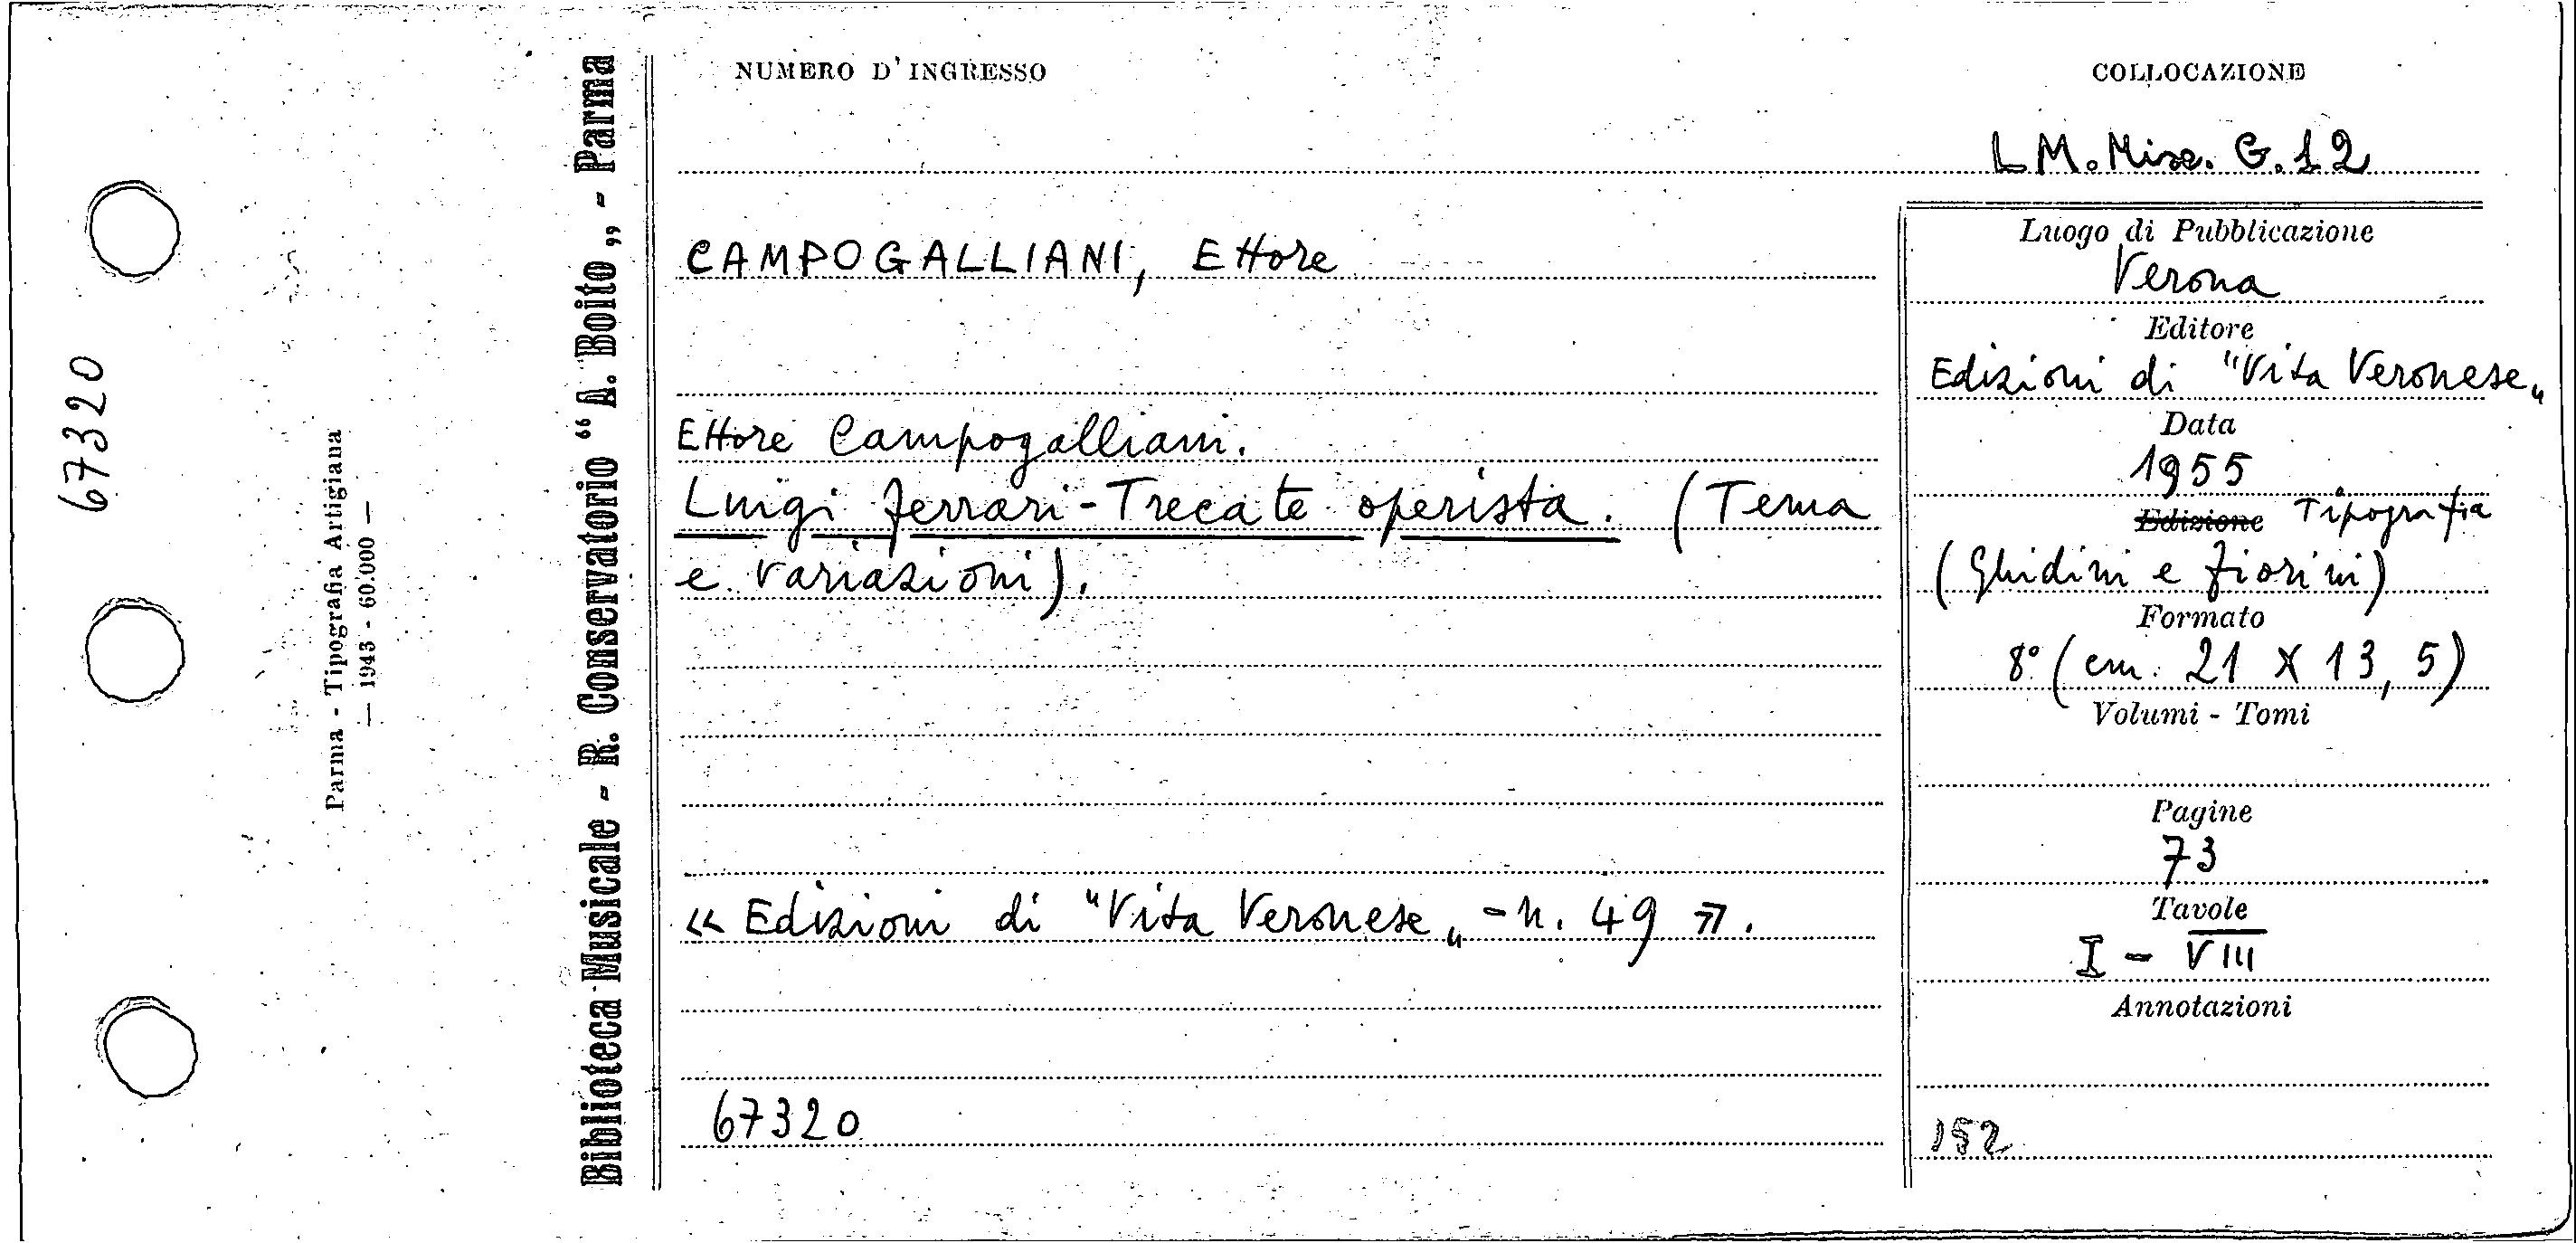 67320
Parma - Tipografia Artigiana
— 1943 - 60.000 —
Biblioteca Musicale - R. Conservatorio “A. Boito„ - Parma
NUMERO D'INGRESSO
COLLOCAZIONE
LM. Misc. G.12
CAMPOGALLIANI, Ettore
Ettore Campogalliani.
Luigi Ferrari-Trecate operista. (Tema
e variazioni).
«Edizioni di "Vita Veronese„ - n. 49».
67320
Luogo di Pubblicazione
Verona
Editore
Edizioni di "Vita Veronese„
Data
1955
Edizione Tipografia
(Ghidini e Fiorini)
Formato
8° (cm. 21 X 13,5)
Volumi - Tomi
Pagine
73
Tavole
I - VIII
Annotazioni
152